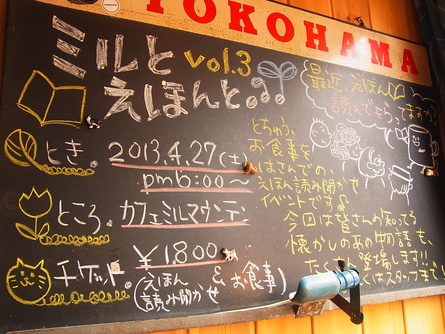 YOKOHAMA
ミルと vol.3
えほんと。
最近、えほん
読んでもらってますか?
とき。
2013.4.27(土)
pm6:00〜
ところ。
カフェミルマウンテン
チケット。
¥1800
(えほん読み聞かせ & お食事)
とちゅう、
お食事を
はさんでの、
えほん読み聞かせ
イベントです♪
今回は皆さんが知ってる
懐かしのあの物語も、
登場します!!
スタッフまで